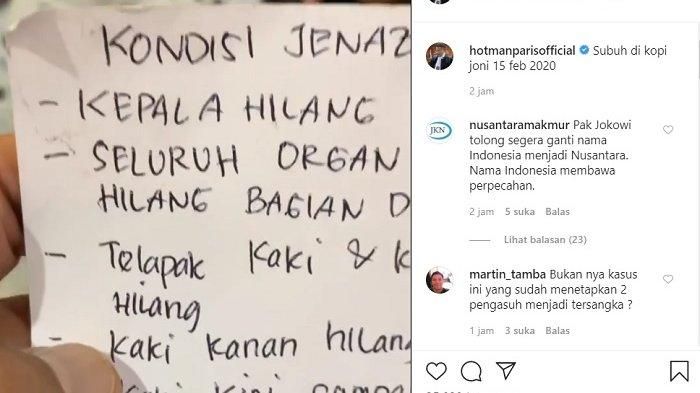 KONDISI JENAZ
- KEPALA HILANG
- SELURUH ORGAN
HILANG BAGIAN D
- Telapak Kaki & K
Hilang
- Kaki kanan hilang
hotmanparisofficial Subuh di kopi
joni 15 feb 2020
2 jam
JKN
nusantaramakmur Pak Jokowi
tolong segera ganti nama
Indonesia menjadi Nusantara.
Nama Indonesia membawa
perpecahan.
2 jam 5 suka Balas
Lihat balasan (23)
martin_tamba Bukan nya kasus
ini yang sudah menetapkan 2
pengasuh menjadi tersangka ?
1 jam 3 suka Balas